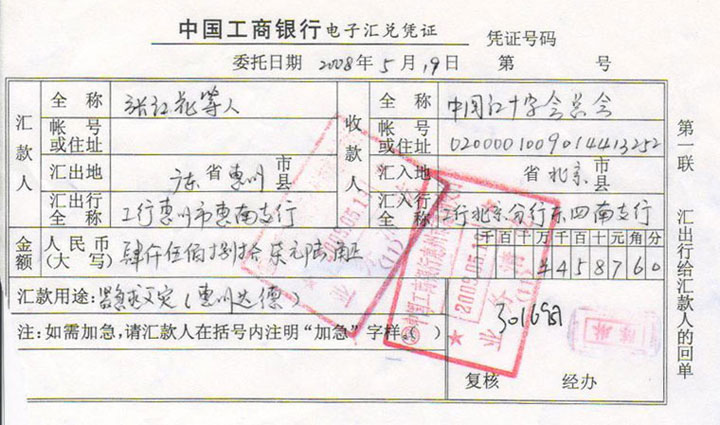 中国工商银行 电子汇兑凭证 凭证号码
委托日期 2008年5月19日 第 号
汇款人 全称 张红花等人 收款人 全称 中国红十字会总会
帐号或住址 帐号或住址 0200001009014413252
汇出地 广东省惠州市县 汇入地 省北京市县
汇出行全称 工行惠州市惠南支行 汇入行全称 工行北京分行东四南支行
金额 人民币(大写) 肆仟伍佰捌拾柒元陆角正 千百十万千百十元角分
¥458760
汇款用途: (惠州达德)
注:如需加急,请汇款人在括号内注明“加急”字样。( )
复核 经办
第一联 汇出行给汇款人的回单